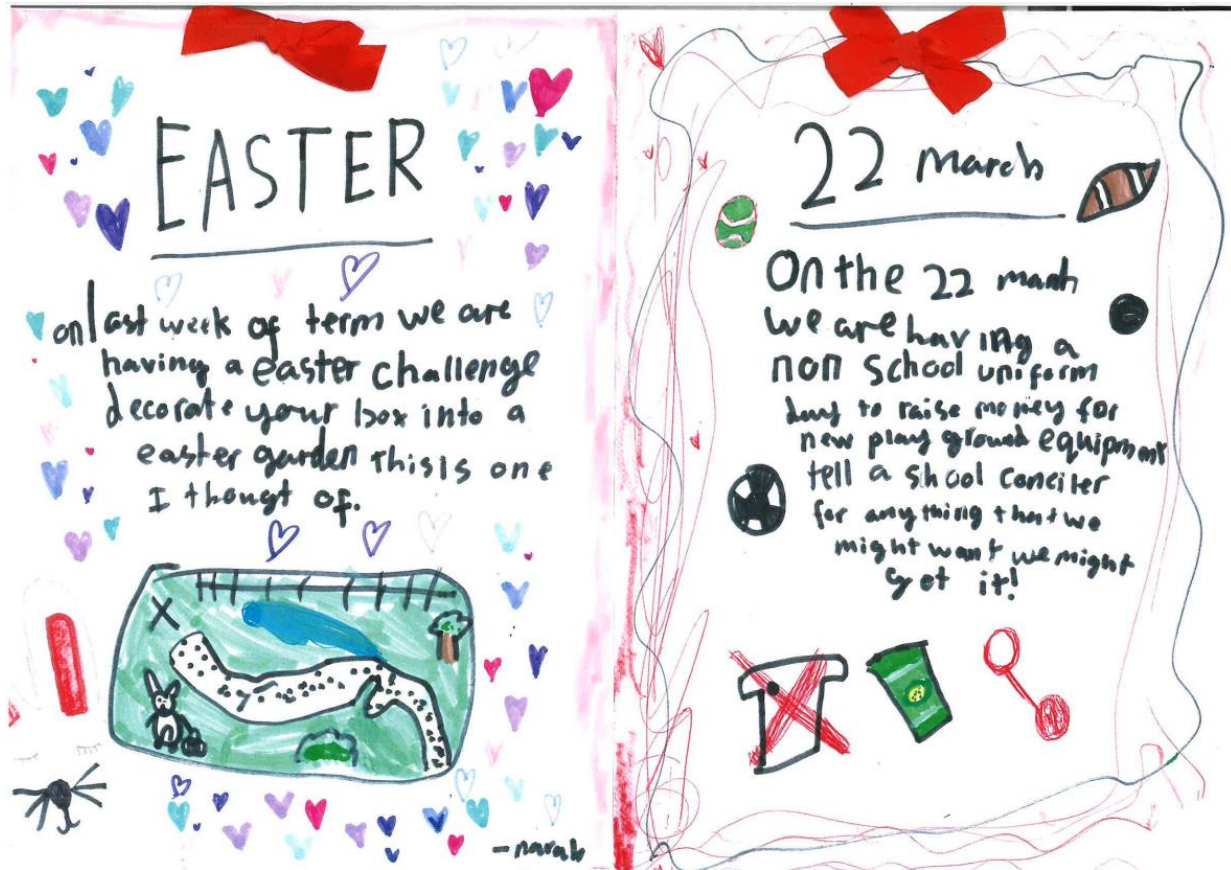 EASTER
on last week of term we are
having a easter challenge
decorate your box into a
easter garden this is one
I thougt of.
22 march
On the 22 march
we are having a
non school uniform
day to raise money for
new play ground equipment
tell a shool conciler
for any thing that we
might want we might
get it!